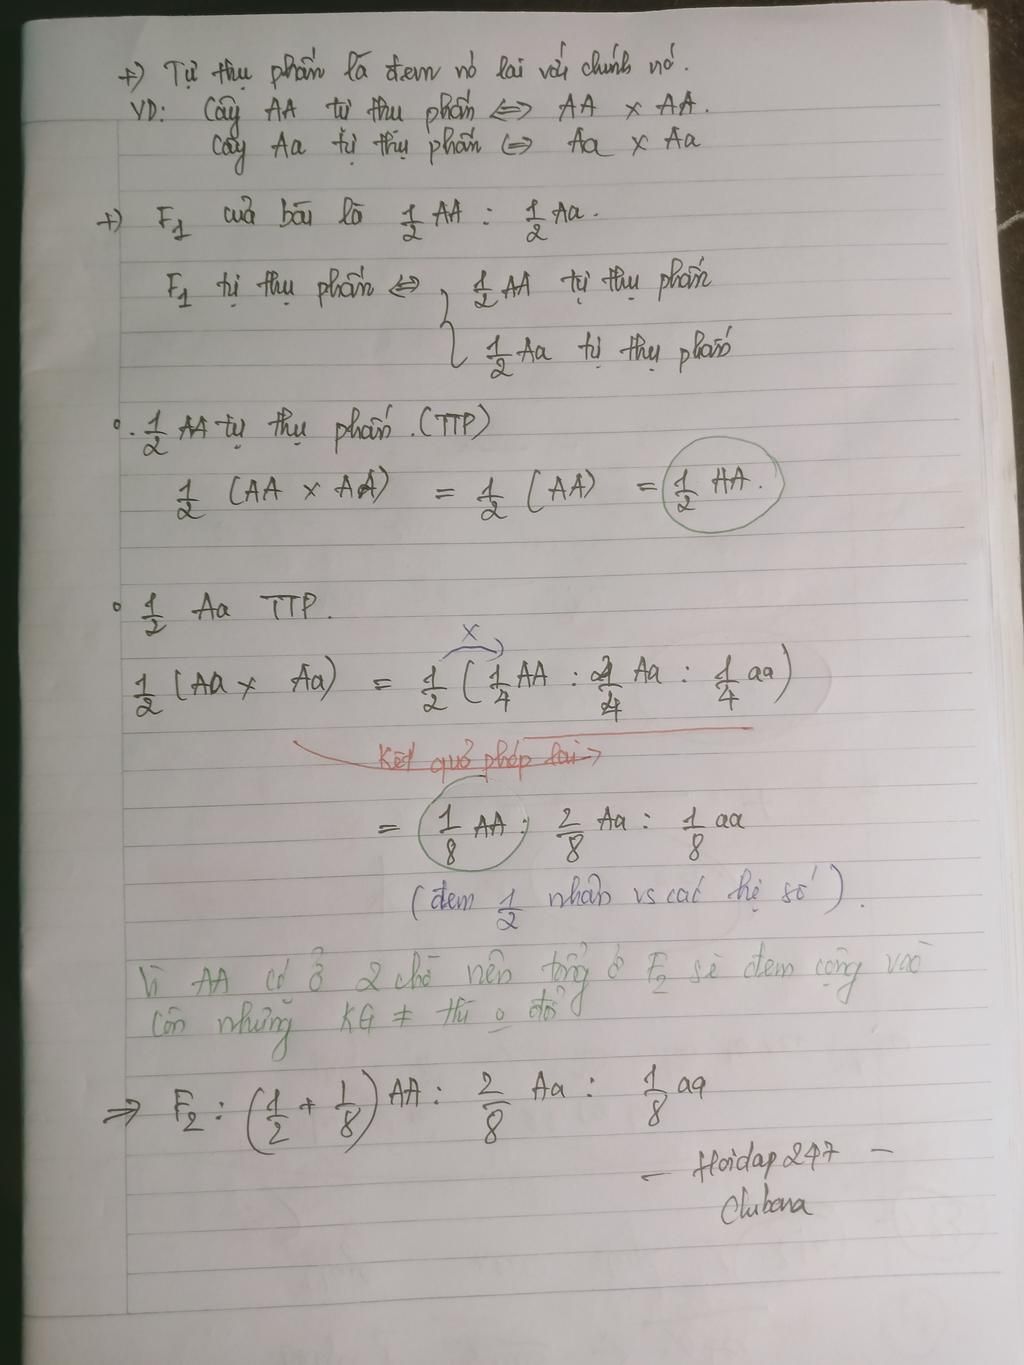 +) Tự thụ phấn là đem nó lai với chính nó.
VD: Cây AA tự thụ phấn ⇔ AA x AA.
Cây Aa tự thụ phấn ⇔ Aa x Aa
+) F1 của bài là 1/2 AA : 1/2 Aa.
F1 tự thụ phấn ⇔ { 1/2 AA tự thụ phấn
1/2 Aa tự thụ phấn
. 1/2 AA tự thụ phấn. (TTP)
1/2 (AA x AA) = 1/2 (AA) = 1/2 AA.
1/2 Aa TTP.
x
1/2 (Aa x Aa) = 1/2 (1/4 AA : 2/4 Aa : 1/4 aa)
Kết quả phép lai →
= 1/8 AA : 2/8 Aa : 1/8 aa
(đem 1/2 nhân vs các hệ số).
Vì AA có ở 2 chỗ nên tổng ở F2 sẽ đem cộng vào
còn những KG ≠ thì o đổi
⇒ F2 : (1/2 + 1/8) AA : 2/8 Aa : 1/8 aa
- Hoidap247 -
Chubena